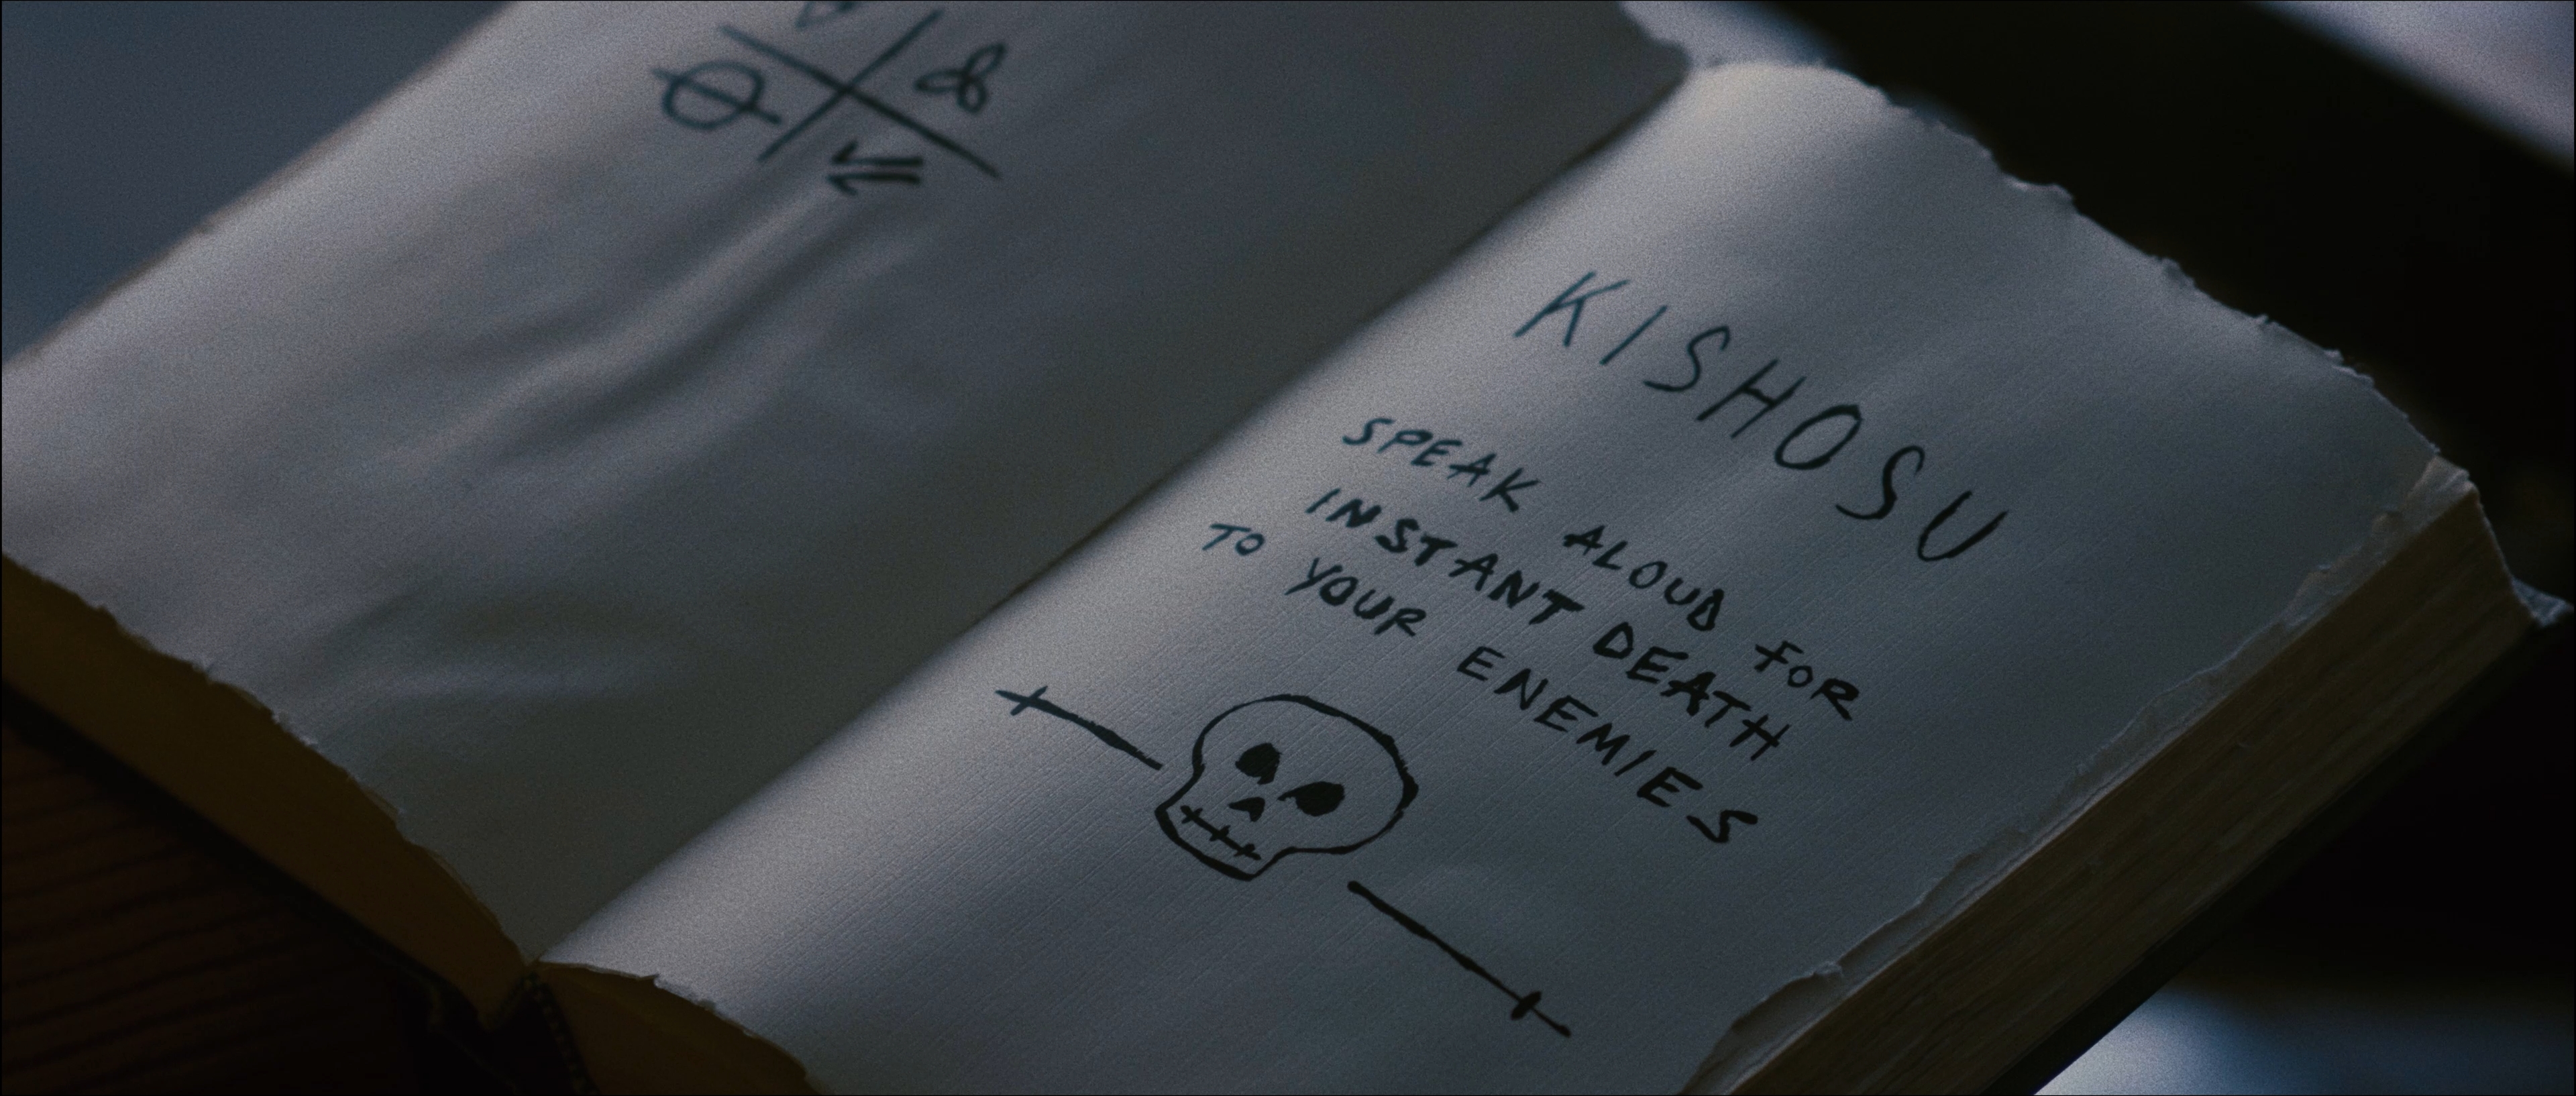 KISHOSU
SPEAK ALOUD FOR
INSTANT DEATH
TO YOUR ENEMIES